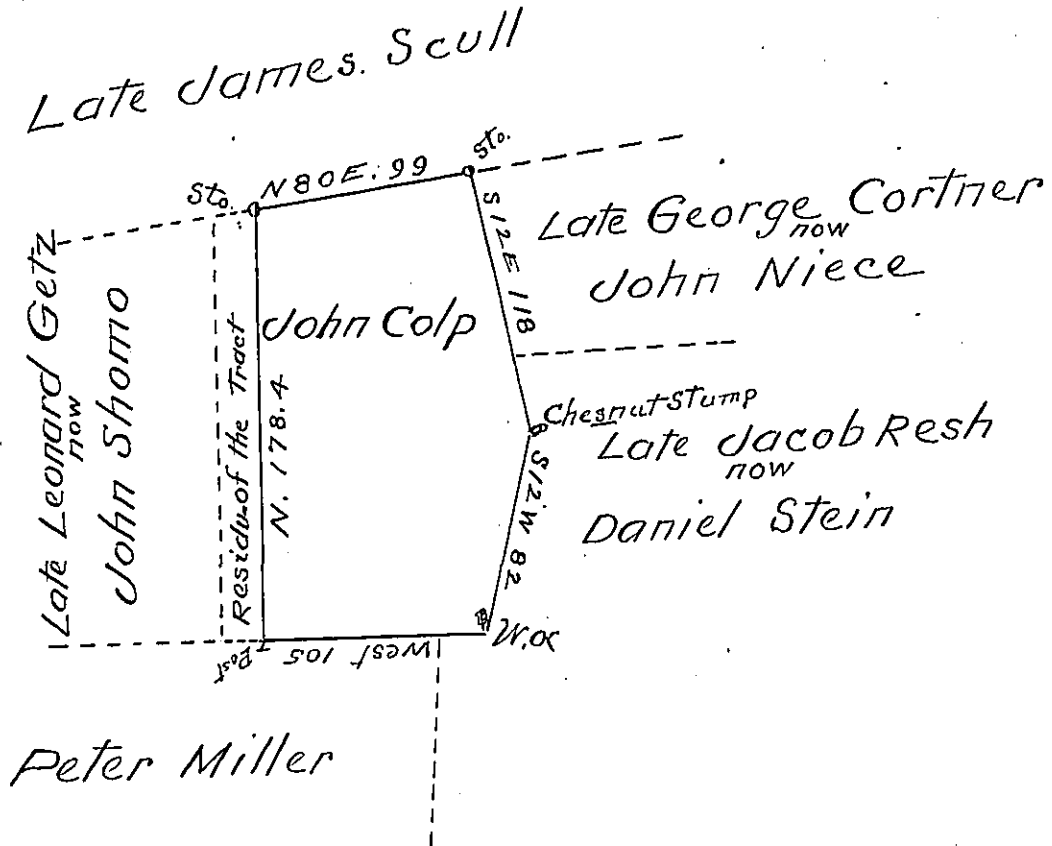 Late James. Scull
Sto.
N80E. 99
Sto.
S12E 118
Late George Cortner
now
John Niece
Late Leonard Getz
now
John Shomo
Residu.of the Tract
John Colp
N. 178.4
Chesnut Stump
Late Jacob Resh
now
Daniel Stein
S12W 82
W.o
Post
West 105
Peter Miller